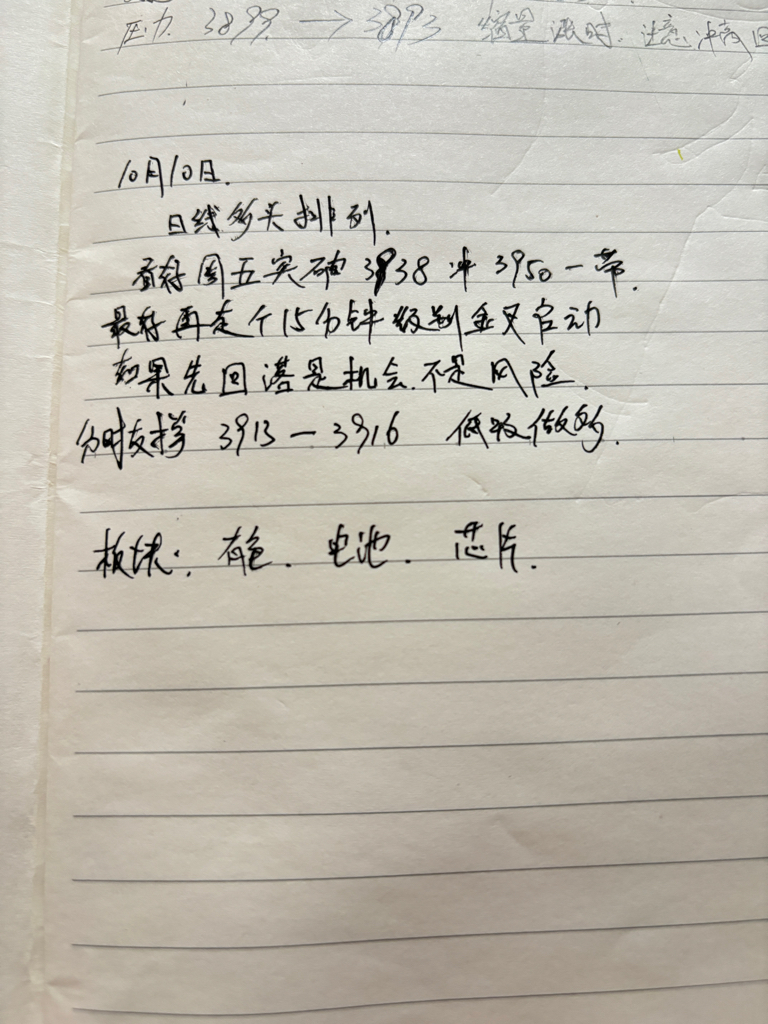 压力 3899 → 3893 缩量涨时. 注意冲高回
10月10日.
日线多头排列.
看好周五突破 3938 冲 3950一带.
最好再走个15分钟级别金叉启动
如果先回落是机会.不是风险.
分时支撑 3913 — 3916 低吸做多.
板块: 有色. 电池. 芯片.